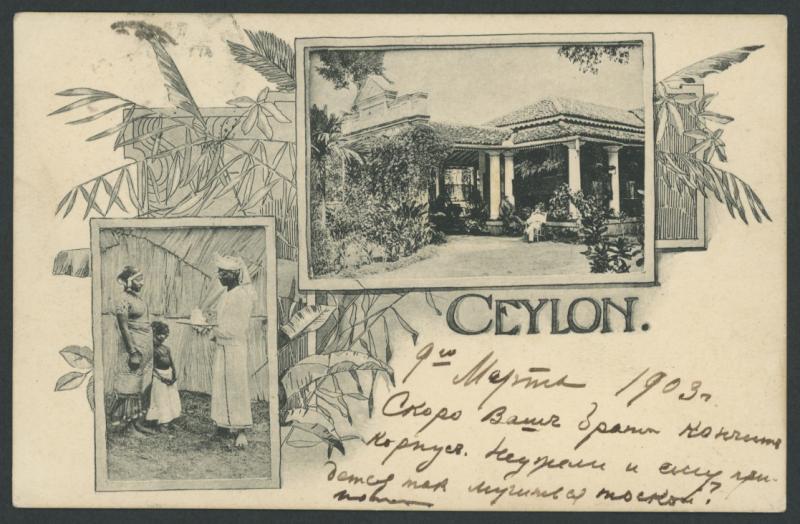 CEYLON.
9го Марта 1903г.
Скоро Вашъ братъ кончитъ
корпусъ. Неужели и ему при-
дется такъ мучиться тоской?